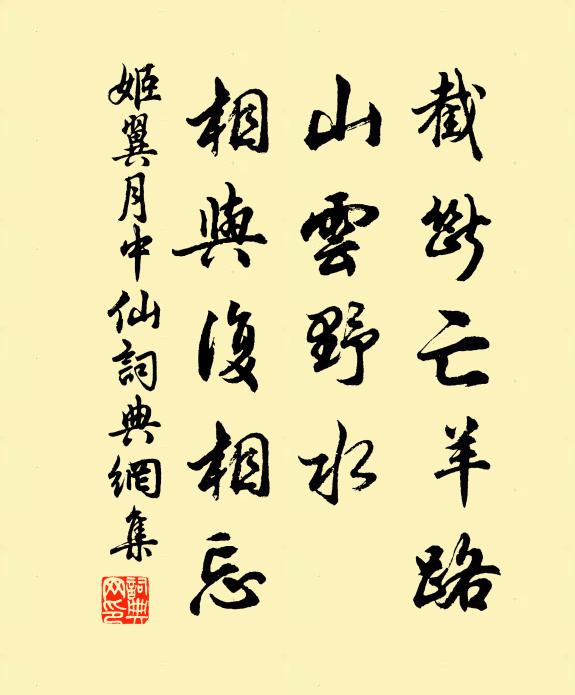 截斷亡羊路
山雲野水
相與復相忘
姬翼月中仙詞典網集
詞典网印